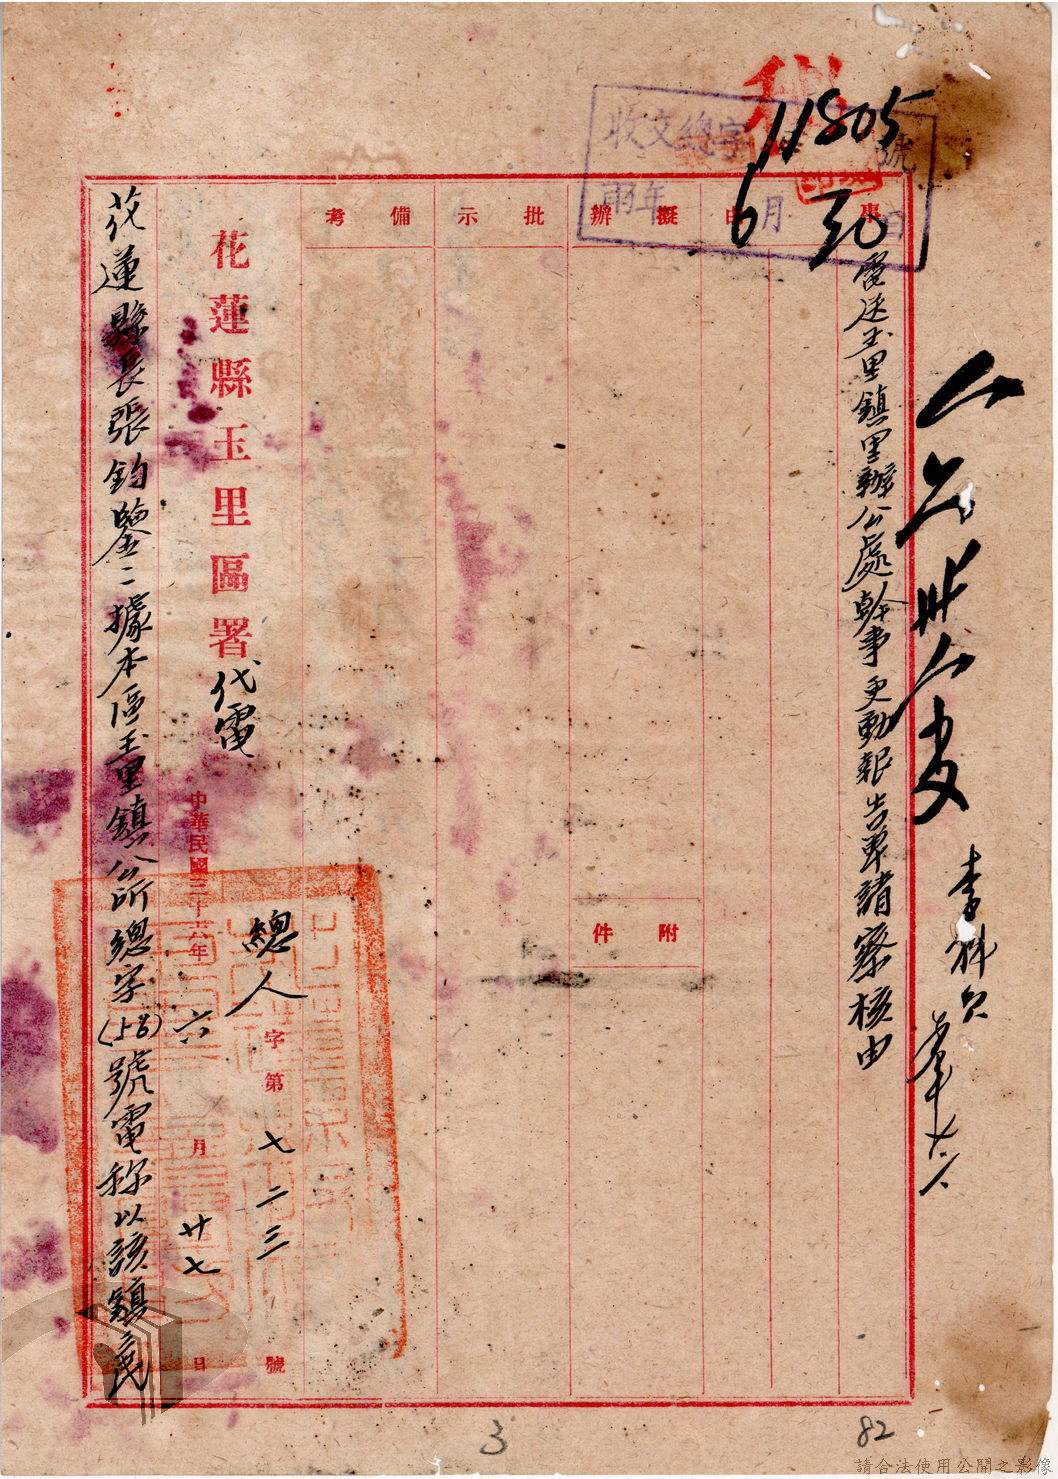 收文總字 11805 號
年 6 月 30 日
事由
擬辦
批示
備考
電送玉里鎮里辦公處幹事更動報告單請察核由
附件
花蓮縣玉里區署代電
中華民國三十六年六月廿七日
總人字第七二三號
花蓮縣長張鈞鑒:據本區玉里鎮公所總字號電称以該鎮
3
82
請合法使用公開之影像